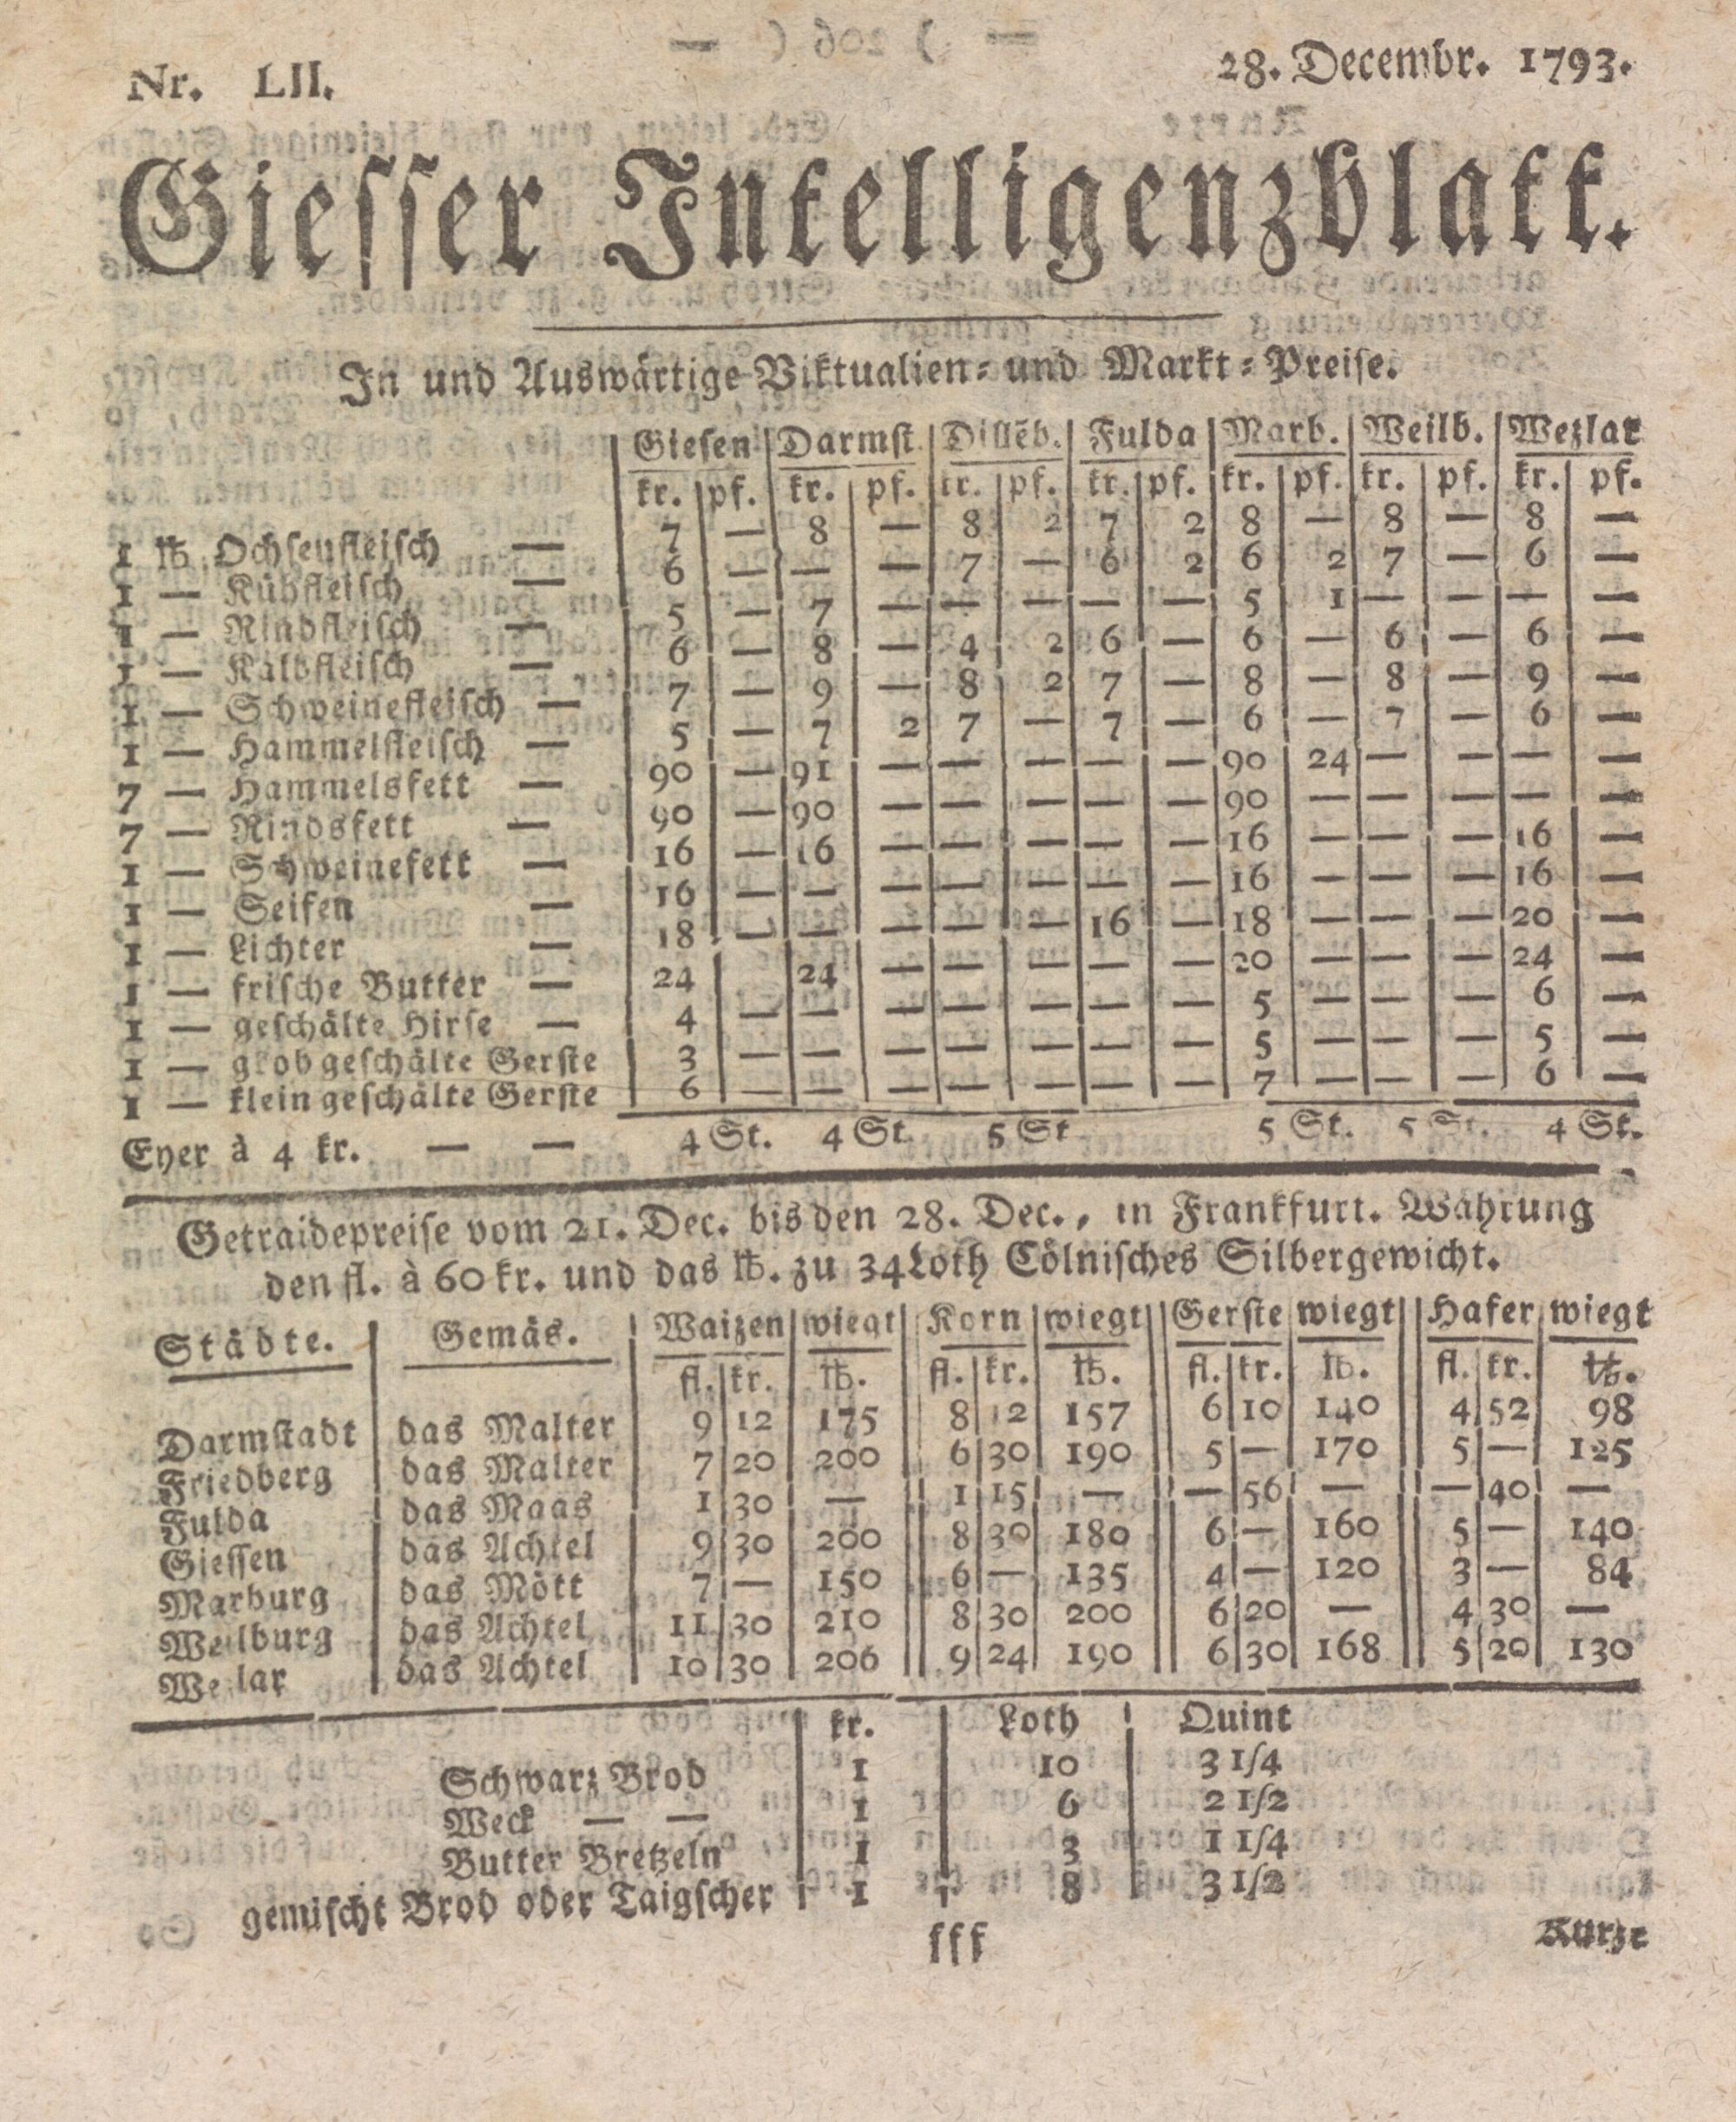 Nr. LII.
28. Decembr. 1793.
Giesser Intelligenzblatt.
In und Auswärtige Viktualien- und Markt-Preise.
Giesen Darmst. Dillēb. Fulda Marb. Weilb. Wezlar
kr. pf. kr. pf. kr. pf. kr. pf. kr. pf. kr. pf. kr. pf.
1 ℔ Ochsenfleisch — 7 — 8 — 8 2 7 2 8 — 8 — 8 —
1 — Kühfleisch — 6 — — — 7 — 6 2 6 2 7 — 6 —
1 — Rindfleisch — 5 — 7 — — — — — 5 1 — — — —
1 — Kalbfleisch — 6 — 8 — 4 2 6 — 6 — 6 — 6 —
1 — Schweinefleisch — 7 — 9 — 8 2 7 — 8 — 8 — 9 —
1 — Hammelfleisch — 5 — 7 2 7 — 7 — 6 — 7 — 6 —
7 — Hammelsfett — 90 — 91 — — — — — 90 24 — — — —
7 — Rindsfett — 90 — 90 — — — — — 90 — — — — —
1 — Schweinefett — 16 — 16 — — — — — 16 — — — 16 —
1 — Seifen — 16 — — — — — — — 16 — — — 16 —
1 — Lichter — 18 — — — — — 16 — 18 — — — 20 —
1 — frische Butter — 24 24 — — — — — 20 — — — 24 —
1 — geschälte Hirse — 4 — — — — — — — 5 — — — 6 —
1 — grob geschälte Gerste 3 — — — — — — — 5 — — — 5 —
1 — klein geschälte Gerste 6 — — — — — — — 7 — — — 6 —
Eyer à 4 kr. — — 4 St. 4 St. 5 St. 5 St. 5 St. 4 St.
Getraidepreise vom 21. Dec. bis den 28. Dec., in Frankfurt. Währung
den fl. à 60 kr. und das ℔. zu 34 Loth Cölnisches Silbergewicht.
Städte. Gemäs. Waizen wiegt Korn wiegt Gerste wiegt Hafer wiegt
fl. kr. ℔. fl. kr. ℔. fl. kr. ℔. fl. kr. ℔.
Darmstadt das Malter 9 12 175 8 12 157 6 10 140 4 52 98
Friedberg das Malter 7 20 200 6 30 190 5 — 170 5 — 125
Fulda das Maas 1 30 — 1 15 — — 56 — — 40 —
Giessen das Achtel 9 30 200 8 30 180 6 — 160 5 — 140
Marburg das Mött 7 — 150 6 — 135 4 — 120 3 — 84
Weilburg das Achtel 11 30 210 8 30 200 6 20 — 4 30 —
Wezlar das Achtel 10 30 206 9 24 190 6 30 168 5 20 130
kr. Loth Quint
Schwarz Brod 1 10 3 1/4
Weck — — 1 6 2 1/2
Butter Bretzeln 1 3 1 1/4
gemischt Brod oder Taigscher 1 8 3 1/2
fff
Kurze